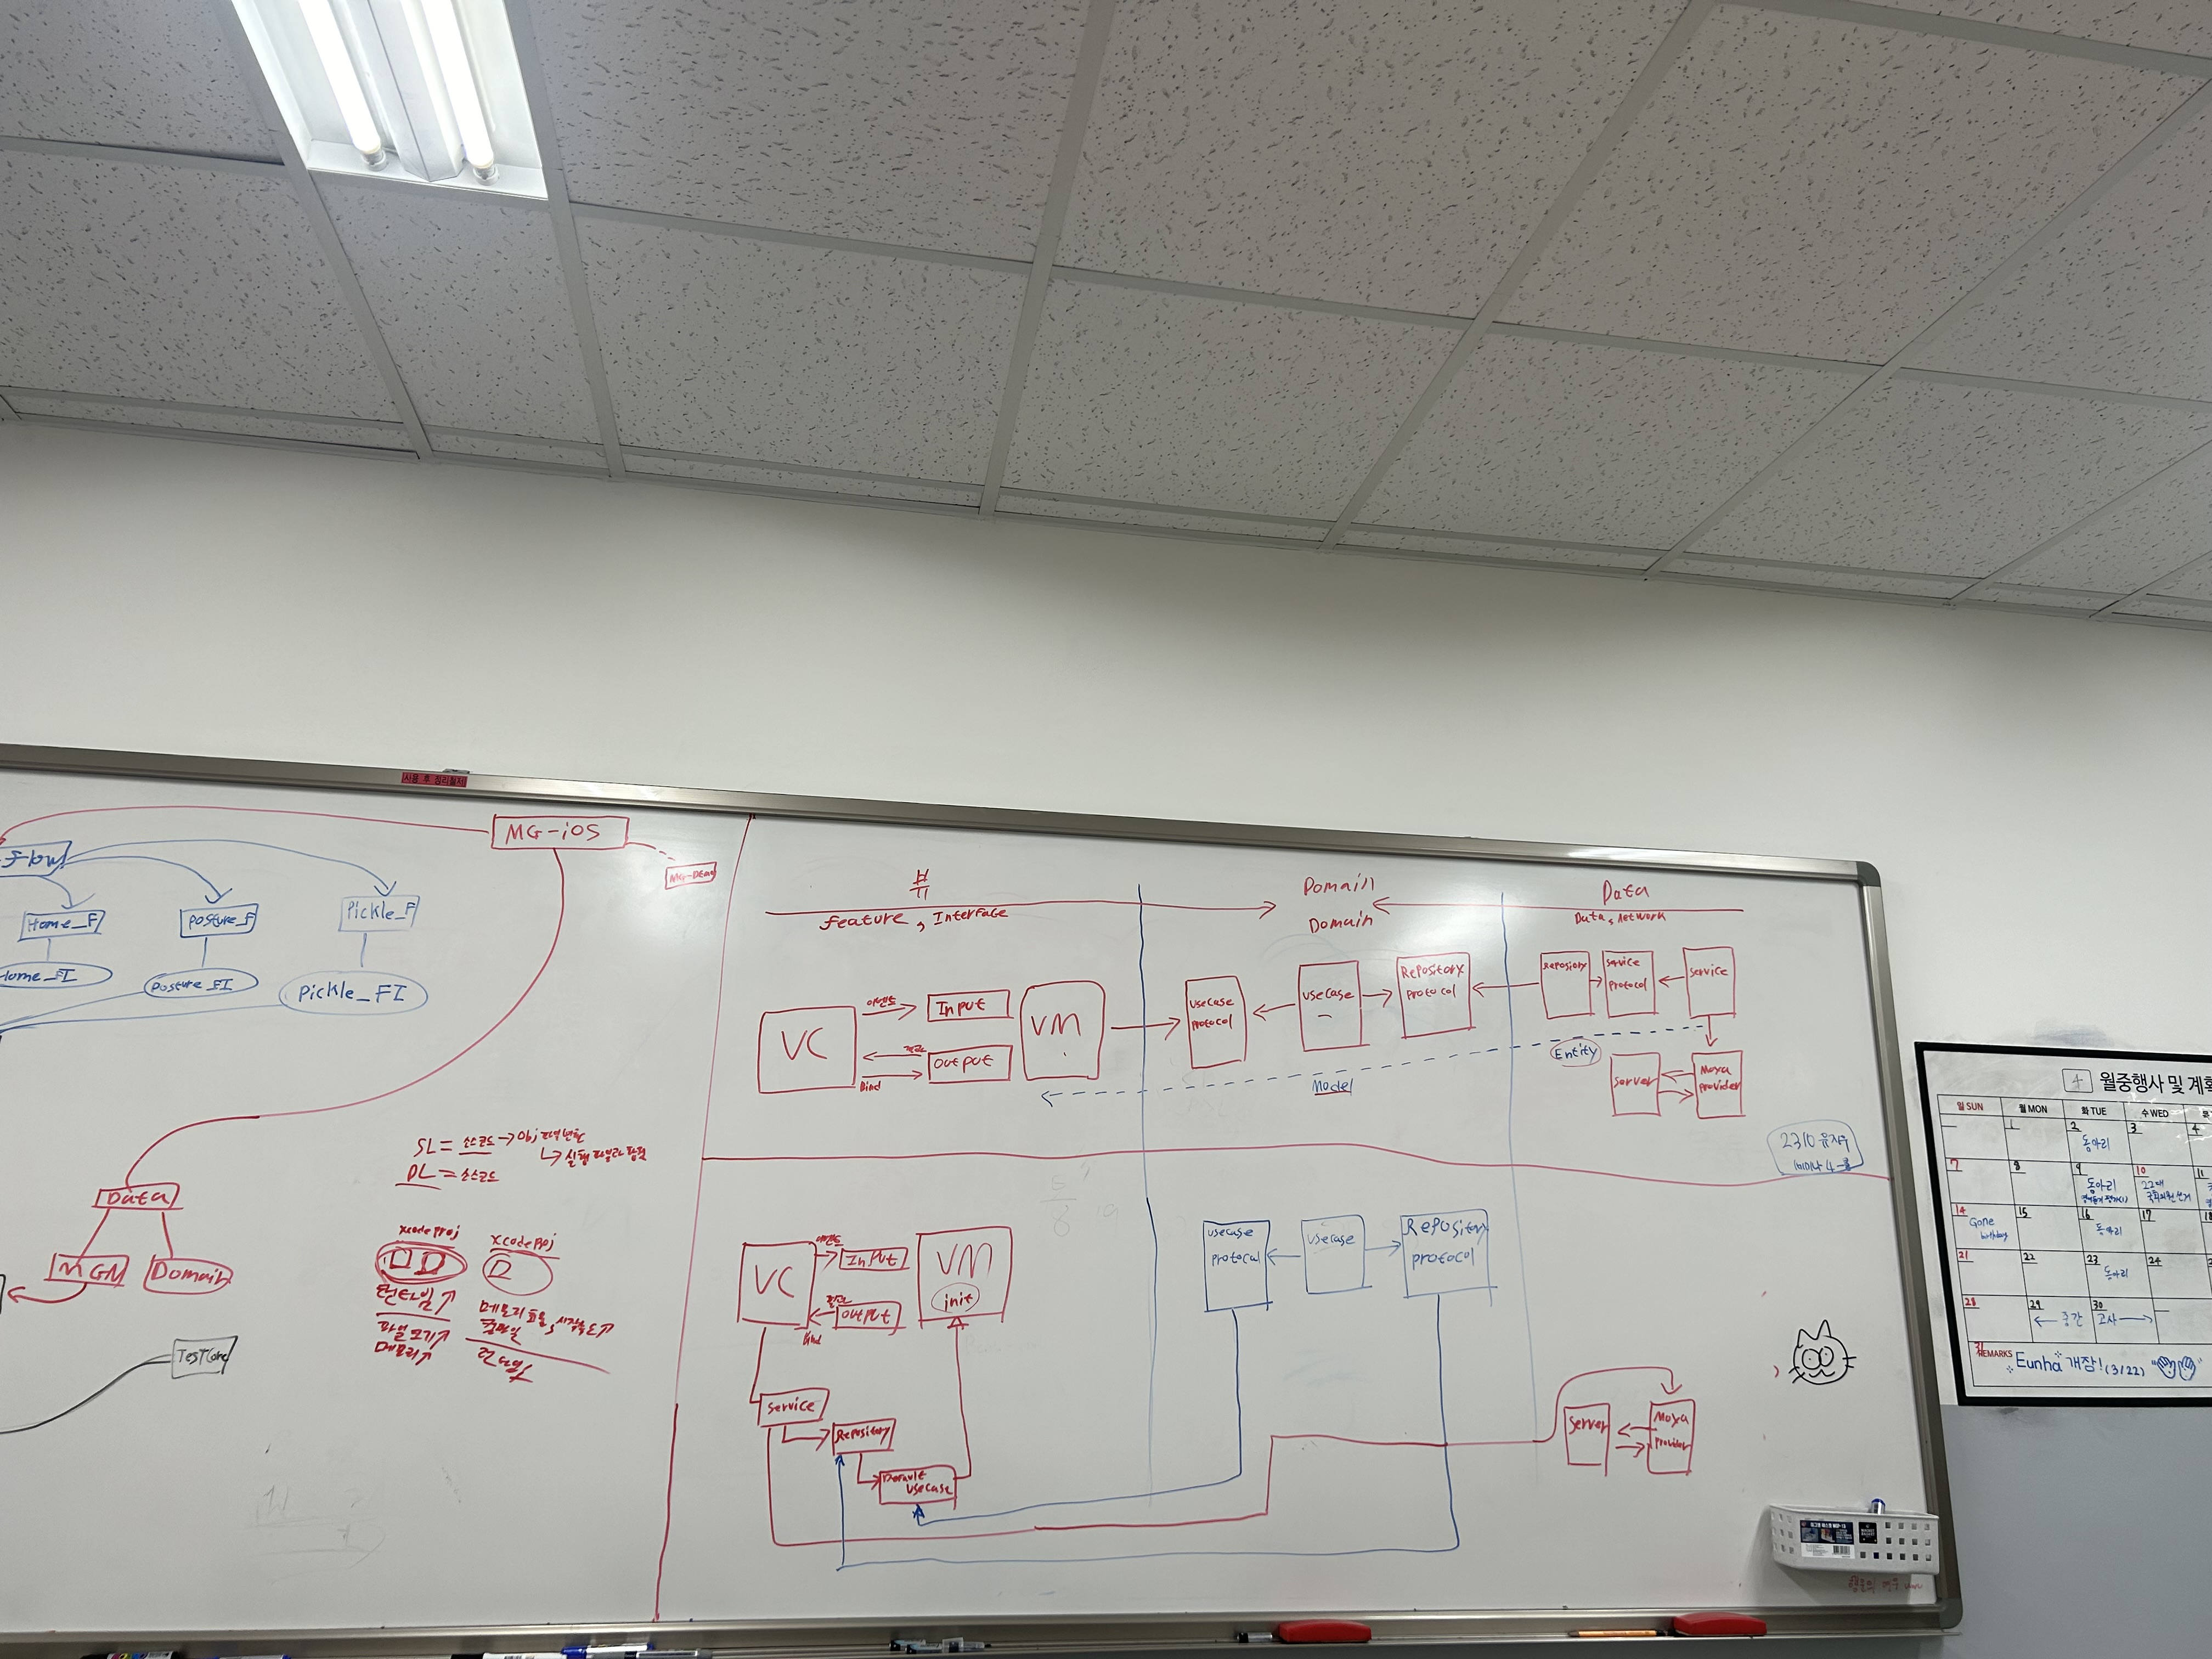 사용 후 정리철저
MG-iOS
Flow
Home_F
Posture_F
Pickle_F
Home_FI
Posture_FI
Pickle_FI
Data
MGM
Domain
TestCore
SL = 소스코드 → Obj 파일변환
↳ 실행파일과 합쳐
DL = 소스코드
xcodeproj
xcodeproj
런타임↑
파일크기↑
메모리↑
메모리 효율, 시작속도↑
컴파일
런타임
뷰
feature, Interface
Domain
Domain
Data
Data, Network
VC
이벤트
Input
결과
Output
Bind
VM
usecase protocol
usecase
Repository protocol
Repository
Service protocol
Service
Entity
Model
Server
Moya provider
2310 윤지우
세미나 4-룸
VC
이벤트
Input
결과
Output
Bind
VM
init
Service
Repository
Default usecase
usecase protocol
usecase
Repository protocol
Server
Moya provider
4 월중행사 및 계획
일 SUN 월 MON 화 TUE 수 WED
1 2 3 4
동아리
7 8 9 10 11
동아리
22대 국회의원선거
14 15 16 17 18
Gone birthday
동아리
21 22 23 24
동아리
28 29 30
← 중간 고사 →
31
REMARKS
Eunha 개장! (3/22)